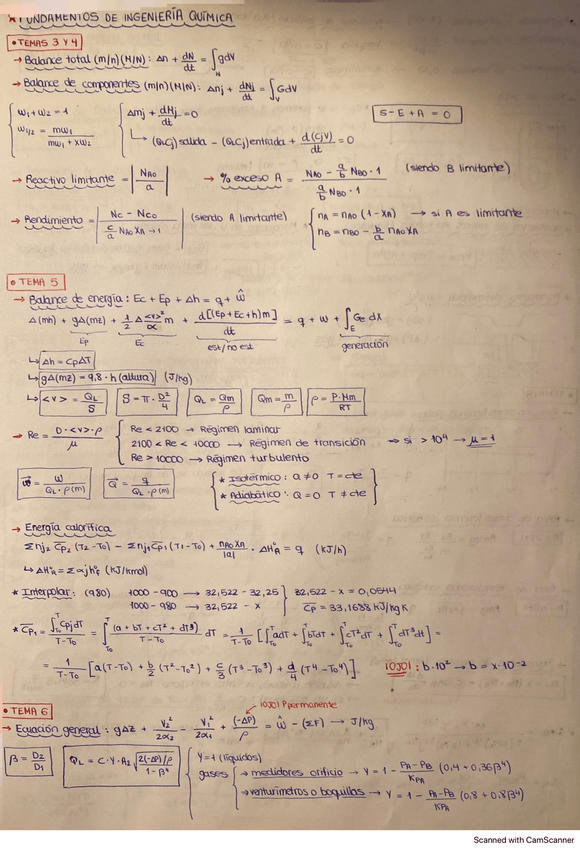 * FUNDAMENTOS DE INGENIERÍA QUÍMICA
• TEMAS 3 Y 4
→ Balance total (m/n)(M/N): Δn + dN/dt = ∫_N gdV
→ Balance de componentes (m/n)(M/N): Δnj + dNj/dt = ∫_V GdV
w1 + w2 = 1
w1/2 = mw1 / (mw1 + xw2)
Δmj + dMj/dt = 0
↳ (QLCj) salida - (QLCj) entrada + d(CjV)/dt = 0
S - E + A = 0
→ Reactivo limitante = |NAO/a|
→ % exceso A = (NAO - a/b NBO · 1) / (a/b NBO · 1) (siendo B limitante)
→ Rendimiento = |(NC - NCO) / (c/a NAO XA→1)| (siendo A limitante)
nA = nAO (1 - XA) → si A es limitante
nB = nBO - b/a nAO XA
• TEMA 5
→ Balance de energía: Ec + Ep + Δh = q + ŵ
Δ(mh) + gΔ(mz) + 1/2 Δ<v>²/α m + d[(Ep+Ec+h)m]/dt = q + w + ∫_E GE dX
Ep Ec est/no est generación
↳ Δh = CpΔT
↳ gΔ(mz) = 9,8 · h (altura) (J/kg)
↳ <v> = QL/S S = π · D²/4 QL = Qm/ρ Qm = m/ρ ρ = P·Mm/RT
→ Re = D · <v> · ρ / μ
Re < 2100 → Régimen laminar
2100 < Re < 10000 → Régimen de transición
Re > 10000 → Régimen turbulento
⇒ si > 10⁴ → μ = 1
ŵ = w / QL · ρ(m) Q̂ = q / QL · ρ(m)
* Isotérmico: Q ≠ 0 T = cte
* Adiabático: Q = 0 T ≠ cte
→ Energía calorífica
Σnj2 C̄p2 (T2 - T0) - Σnj1 C̄p1 (T1 - T0) + nAO XA/|a| · ΔH°R = q (KJ/h)
↳ ΔH°R = Σαjh°f (KJ/kmol)
* Interpolar: (980) 1000 - 900 → 32,522 - 32,25 32,522 - x = 0,0544
1000 - 980 → 32,522 - x C̄p = 33,1638 KJ/kg K
* C̄p1 = ∫_T0^T CpjdT / (T - T0) = ∫_T0^T (a + bT + cT² + dT³) / (T - T0) dT = 1/(T - T0) [∫_T0^T adT + ∫_T0^T bTdt + ∫_T0^T cT²dT + ∫_T0^T dT³dt] =
= 1/(T - T0) [a(T - T0) + b/2 (T² - T0²) + c/3 (T³ - T0³) + d/4 (T⁴ - T0⁴)]. ¡OJO!: b · 10² → b = x · 10⁻²
• TEMA 6
¡OJO! P permanente
→ Equación general: gΔz + V2²/2α2 - V1²/2α1 + (-ΔP)/ρ = ŵ - (ΣF) → J/kg
β = D2/D1
QL = C · Y · A2 √(2(-ΔP)/ρ / 1 - β⁴)
Y = 1 (líquidos)
gases → medidores orificio → Y = 1 - (PA - PB)/KPA (0,4 + 0,36β⁴)
→ venturímetros o boquillas → Y = 1 - (PA - PB)/KPA (0,8 + 0,8β⁴)
Scanned with CamScanner